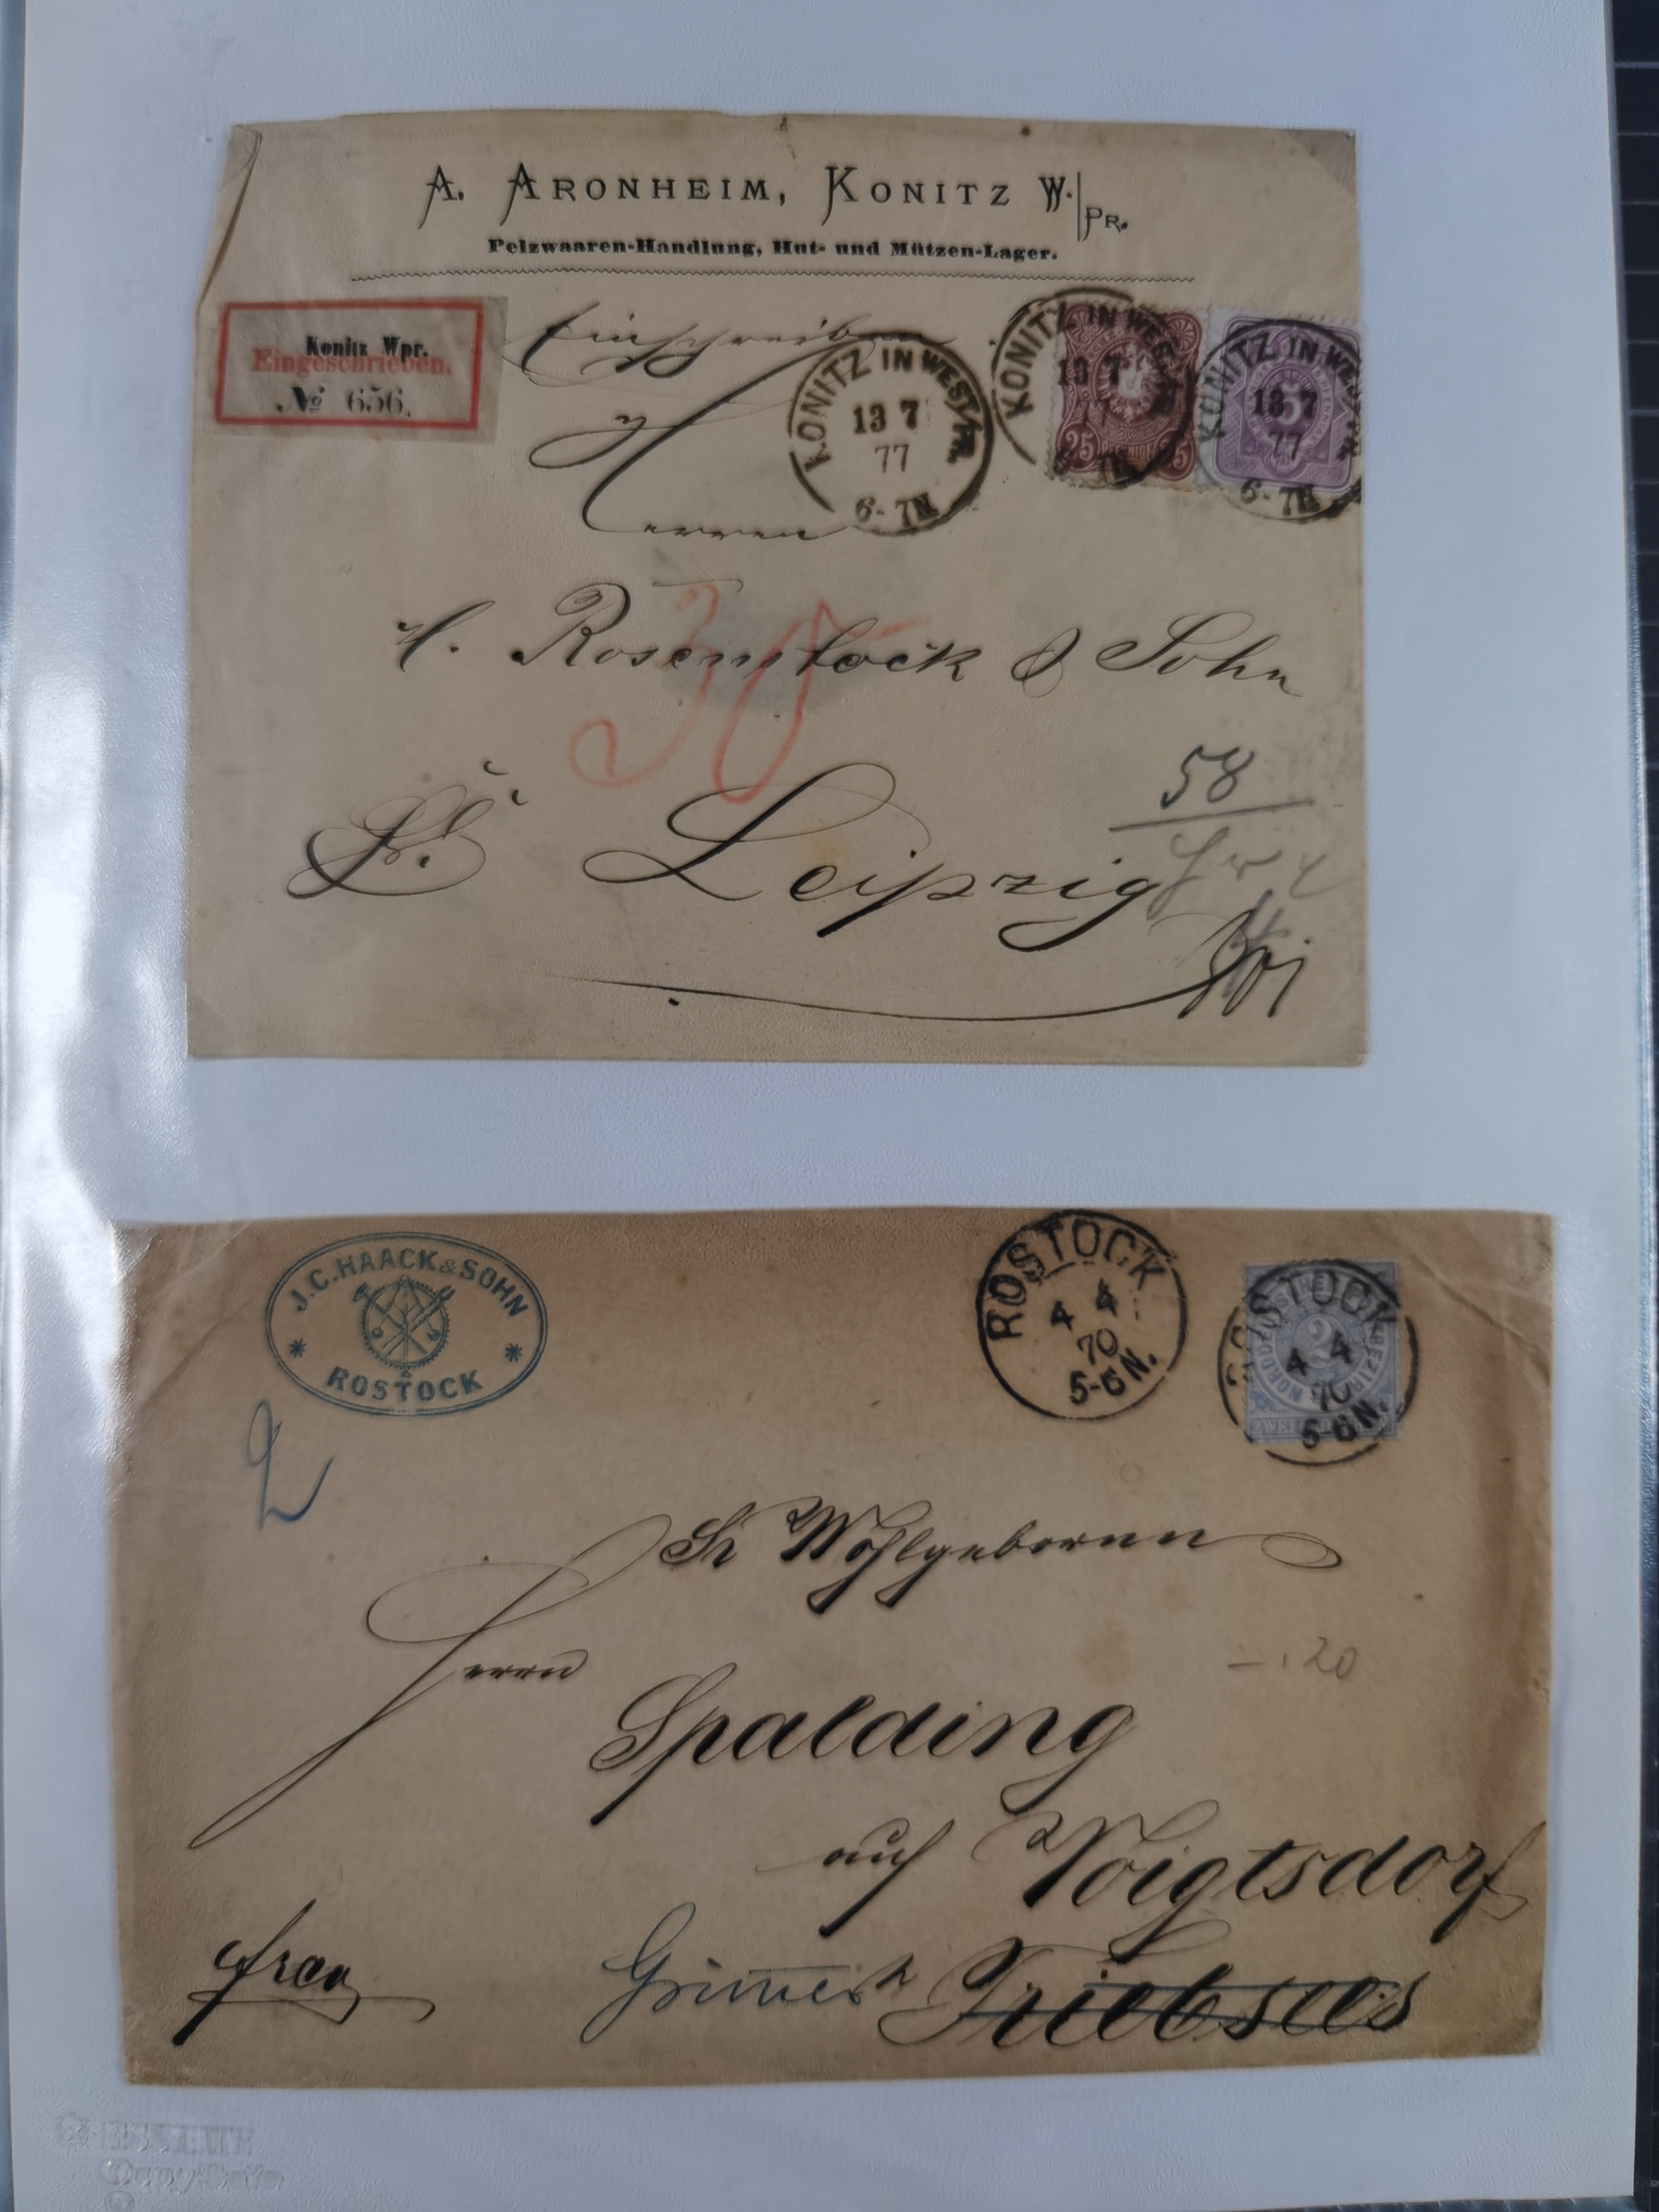 A. ARONHEIM, KONITZ W./PR.
Pelzwaaren-Handlung, Hut- und Mützen-Lager.
Konitz Wpr.
Eingeschrieben.
№ 656.
Einschreiben
KONITZ IN WESTPR.
13 7
77
6-7N
KONITZ IN WEST
13 7
77
25 PFENNIGE 25
KONITZ IN WESTPR.
13 7
77
6-7N
5
Herren
Rosenstock & Sohn
30
58
Leipzig
J.C. HAACK & SOHN
ROSTOCK
2
ROSTOCK
4 4
70
5-6N.
ROSTOCK
4 4
70
5-6N.
2
Sr Wohlgeboren
Herrn
Spalding
20
auf Voigtsdorf
franco
Grimmen Triebsees
ESSELTE
CopySafe